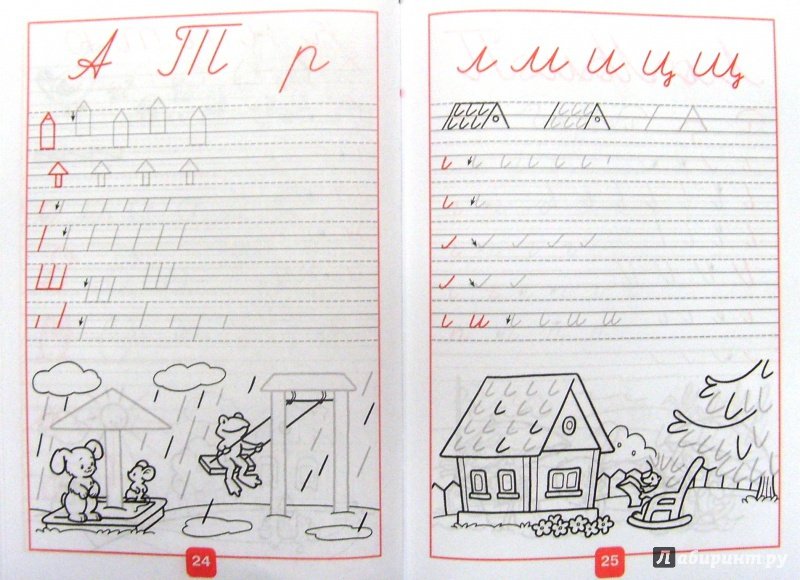 А Т р
24
л м и ц щ
25
Лабиринт.ру